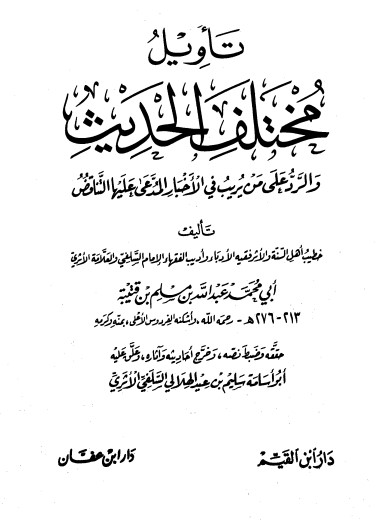 تأويل
مختلف الحديث
والرد على من يريب في الأخبار المدعى عليها التناقض
تأليف
خطيب أهل السنة والأثر فقيه الأدباء وأديب الفقهاء الإمام السلفي والعلامة الأثري
أبي محمد عبد الله بن مسلم بن قتيبة
٢١٣-٢٧٦هـ - رحمه الله، وأسكنه الفردوس الأعلى، بمنه وكرمه
حققه وضبط نصه، وخرج أحاديثه وآثاره، وعلق عليه
أبو أسامة سليم بن عيد الهلالي السلفي الأثري
دار ابن القيم
دار ابن عفان